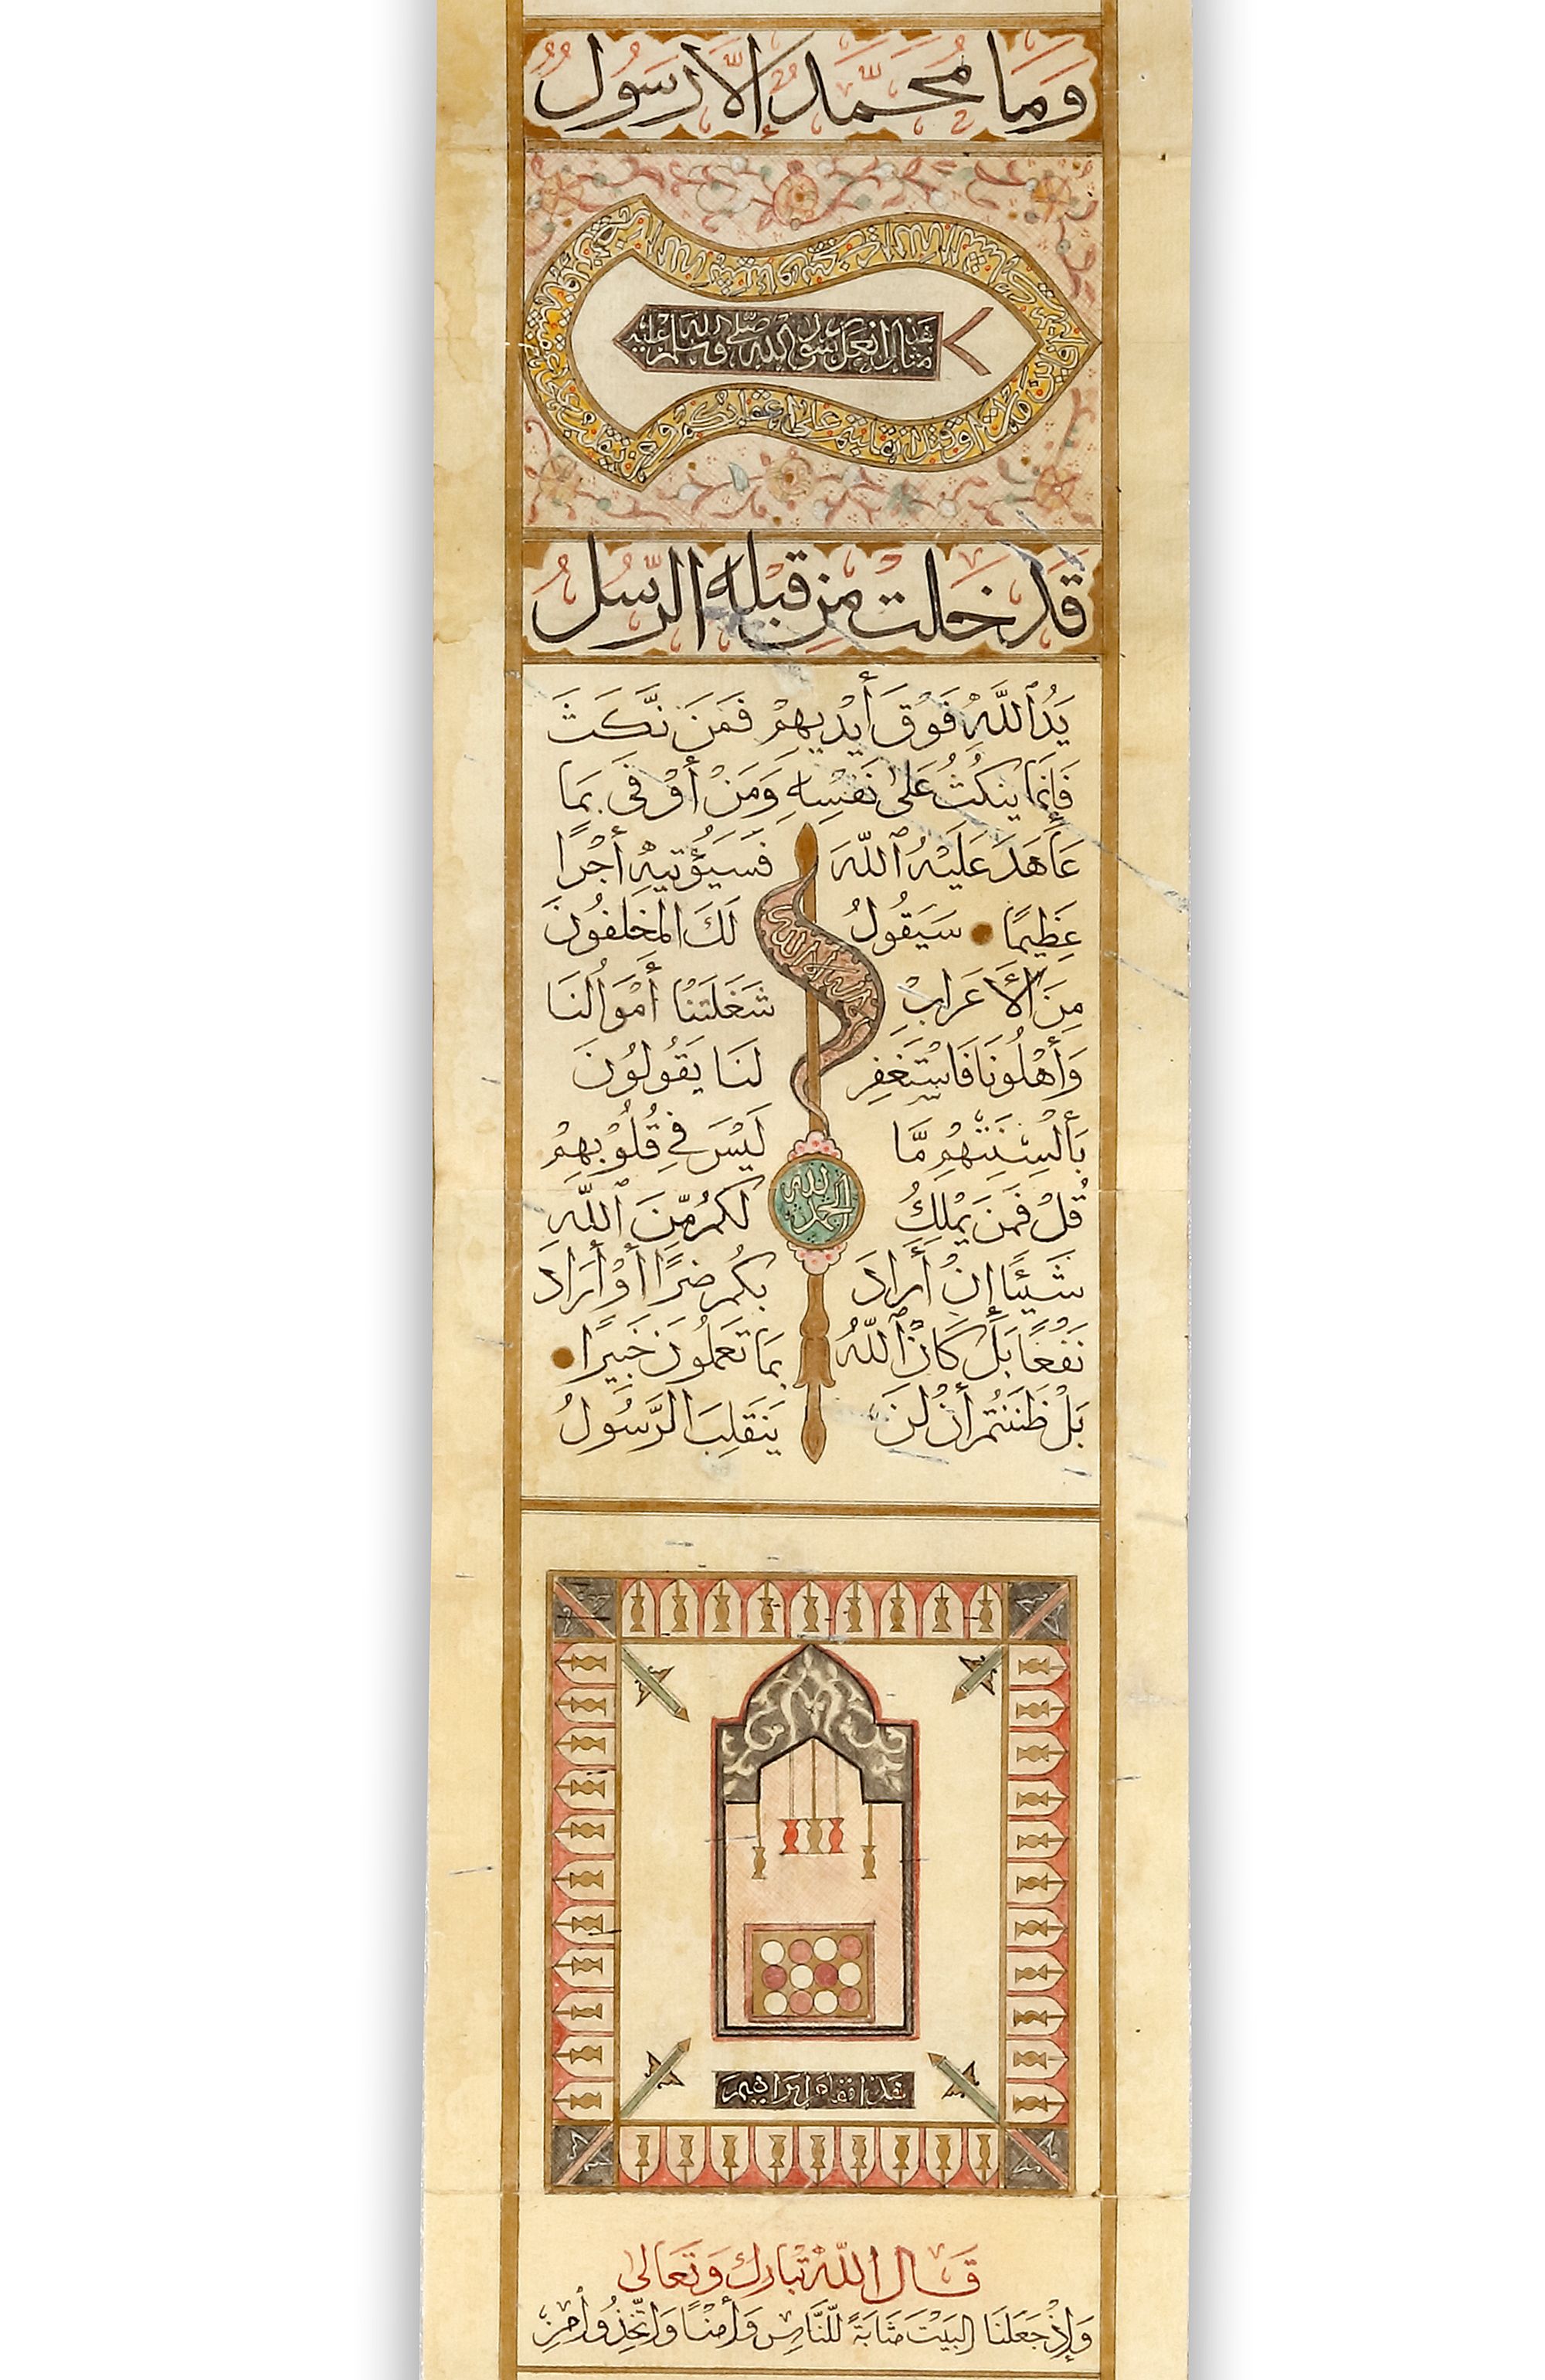 وَمَا مُحَمَّدٌ إِلَّا رَسُولٌ
هذا مثال نعل رسول الله صلى الله عليه وسلم
أو قتل انقلبتم على أعقابكم ومن ينقلب
قَدْ خَلَتْ مِنْ قَبْلِهِ الرُّسُلُ
يَدُ ٱللَّهِ فَوْقَ أَيْدِيهِمْ فَمَنَ نَّكَثَ
فَإِنَّمَا يَنكُثُ عَلَىٰ نَفْسِهِ وَمَنْ أَوْفَىٰ بِمَا
عَاهَدَ عَلَيْهُ ٱللَّهَ فَسَيُؤْتِيهِ أَجْرًا
عَظِيمًا سَيَقُولُ لَكَ الْمُخَلَّفُونَ
مِنَ الْأَعْرَابِ شَغَلَتْنَا أَمْوَالُنَا
وَأَهْلُونَا فَاسْتَغْفِرْ لَنَا يَقُولُونَ
بِأَلْسِنَتِهِمْ مَّا لَيْسَ فِي قُلُوبِهِمْ
قُلْ فَمَنْ يَمْلِكُ لَكُمْ مِّنَ ٱللَّهِ
شَيْئًا إِنْ أَرَادَ بِكُمْ ضَرًّا أَوْ أَرَادَ
نَفْعًا بَلْ كَانَ ٱللَّهُ بِمَا تَعْمَلُونَ خَبِيرًا
بَلْ ظَنَنْتُمْ أَنْ لَنْ يَنْقَلِبَ الرَّسُولُ
الحمد لله
إبراهيم
قَالَ اللَّهُ تَبَارَكَ وَتَعَالَىٰ
وَإِذْ جَعَلْنَا الْبَيْتَ مَثَابَةً لِّلنَّاسِ وَأَمْنًا وَاتَّخِذُوا مِنْ